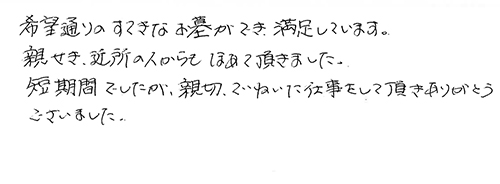 希望通りのすてきなお墓ができ、満足しています。
親せき、近所の人からも ほめて頂きました。
短期間でしたが、親切、ていねいに仕事をして頂きありがとう
ございました。